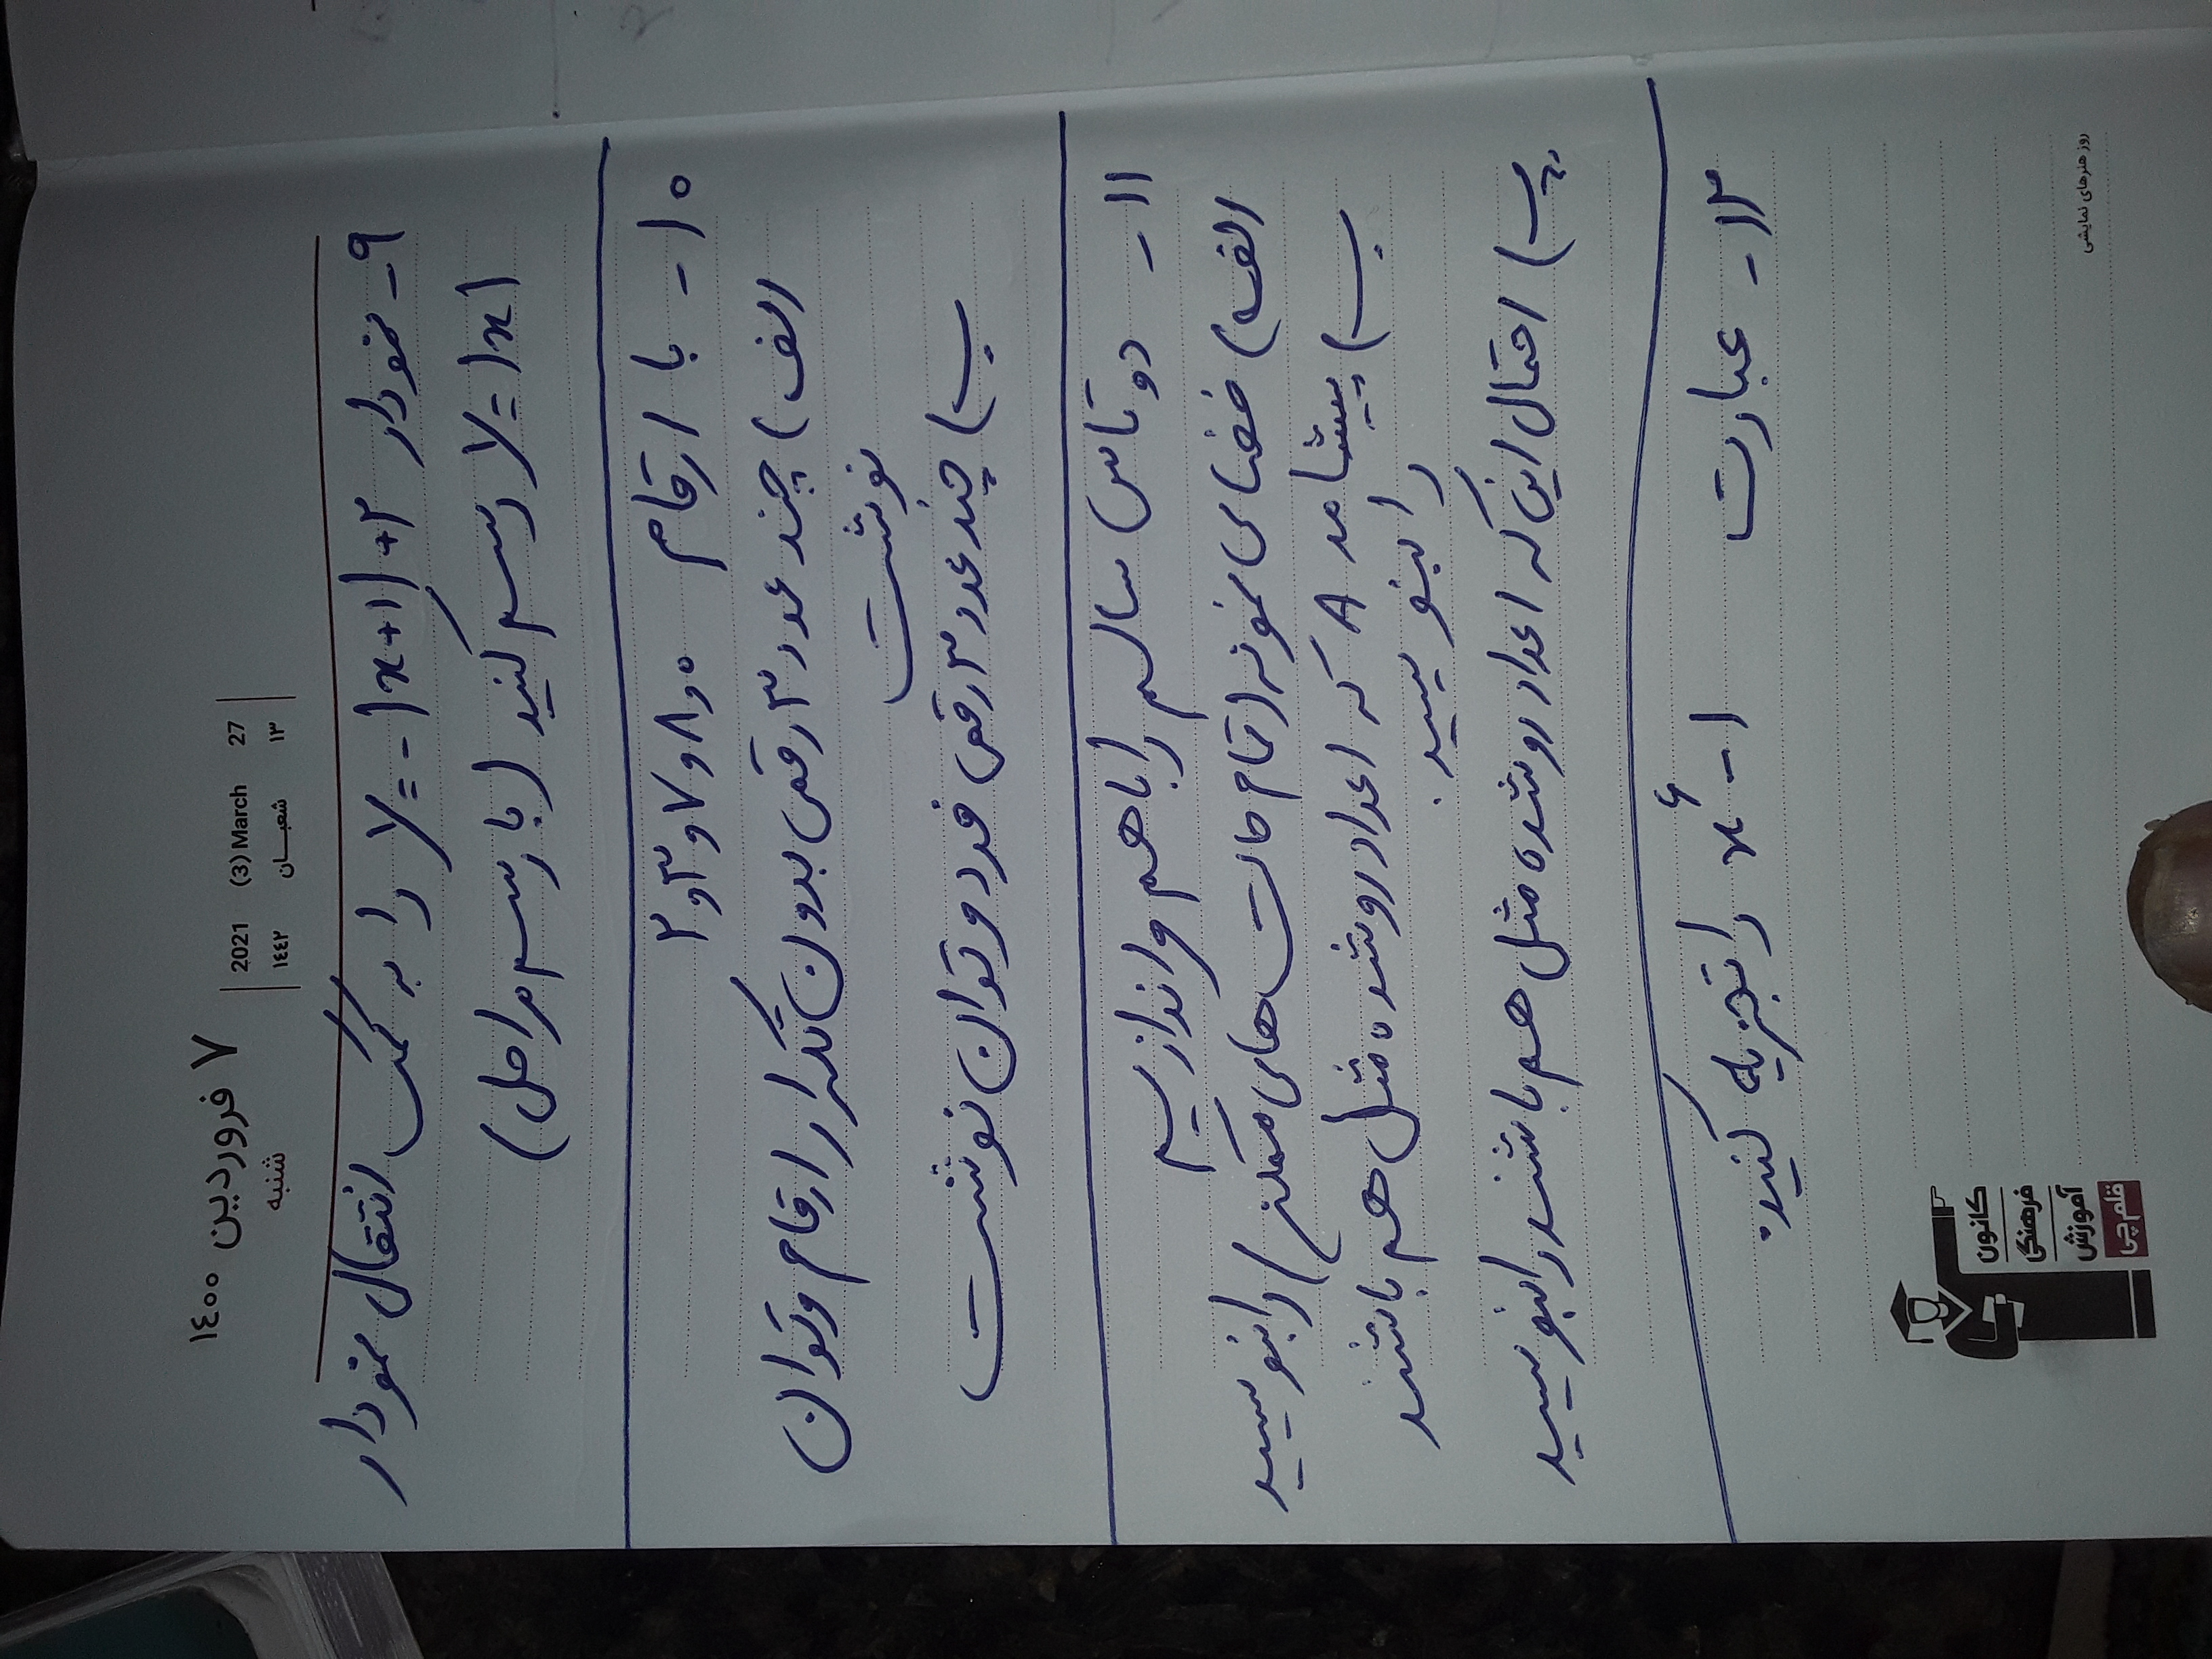 ۷ فروردین ۱٤۰۰
شنبه
2021 (3) March 27
۱٤٤۲ شعبـــان ۱۳
۹- نمودار y = -|x+1|+۲ را به کمک انتقال نمودار
y = |x| رسم کنید (با رسم مراحل)
۱۰- با ارقام ۰و۸و۷و۳و۲
الف) چند عدد ۳ رقمی بدون تکرار ارقام می توان
نوشت
ب) چند عدد ۳ رقمی فرد می توان نوشت
۱۱- دو تاس سالم را با هم می اندازیم
الف) فضای نمونه (تمام حالت های ممکن) را بنویسید
ب) پیشامد A که اعداد رو شده مثل هم باشند
را بنویسید.
پ) احتمال این که اعداد رو شده مثل هم باشند را بنویسید
۱۲- عبارت x⁶-۱ را تجزیه کنید.
کانون
فرهنگی
آموزش
قلم‌چی
روز هنرهای نمایشی